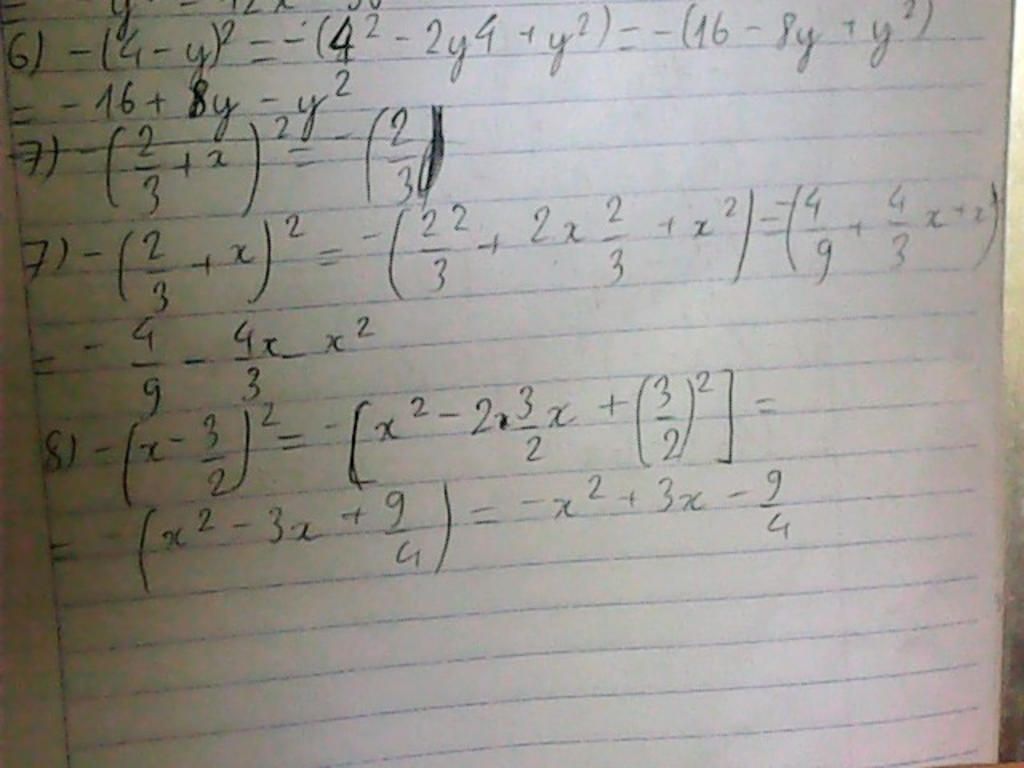 6) -(4-y)² = -(4² - 2y4 + y²) = -(16 - 8y + y²)
= -16 + 8y - y²
7) -(2/3 + x)² = -(2/3)
7) -(2/3 + x)² = -(2²/3 + 2x 2/3 + x²) = -(4/9 + 4/3 x + x²)
= - 4/9 - 4x/3 - x²
8) -(x - 3/2)² = -[x² - 2·3/2 x + (3/2)²] =
= -(x² - 3x + 9/4) = -x² + 3x - 9/4